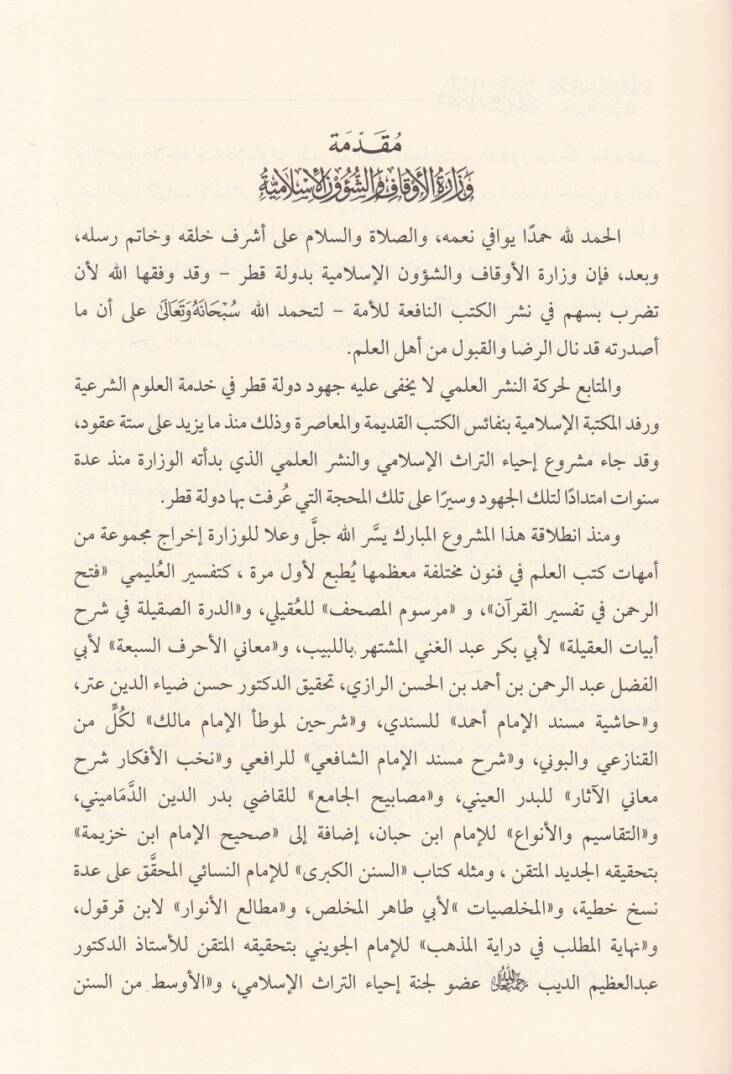 مُقَدّمَة
وَزَارَةُ الأَوْقَافِ وَالشُّؤُوْنِ الإِسْلَامِيَّةِ
الحمد لله حمدًا يوافي نعمه، والصلاة والسلام على أشرف خلقه وخاتم رسله،
وبعد، فإن وزارة الأوقاف والشؤون الإسلامية بدولة قطر – وقد وفقها الله لأن
تضرب بسهم في نشر الكتب النافعة للأمة – لتحمد الله سُبْحَانَهُ وَتَعَالَى على أن ما
أصدرته قد نال الرضا والقبول من أهل العلم.
والمتابع لحركة النشر العلمي لا يخفى عليه جهود دولة قطر في خدمة العلوم الشرعية
ورفد المكتبة الإسلامية بنفائس الكتب القديمة والمعاصرة وذلك منذ ما يزيد على ستة عقود،
وقد جاء مشروع إحياء التراث الإسلامي والنشر العلمي الذي بدأته الوزارة منذ عدة
سنوات امتدادًا لتلك الجهود وسيرًا على تلك المحجة التي عُرفت بها دولة قطر.
ومنذ انطلاقة هذا المشروع المبارك يسَّر الله جلَّ وعلا للوزارة إخراج مجموعة من
أمهات كتب العلم في فنون مختلفة معظمها يُطبع لأول مرة ، كتفسير العُليمي «فتح
الرحمن في تفسير القرآن»، و «مرسوم المصحف» للعُقيلي، و«الدرة الصقيلة في شرح
أبيات العقيلة» لأبي بكر عبد الغني المشتهر باللبيب، و«معاني الأحرف السبعة» لأبي
الفضل عبد الرحمن بن أحمد بن الحسن الرازي، تحقيق الدكتور حسن ضياء الدين عتر،
و«حاشية مسند الإمام أحمد» للسندي، و«شرحين لموطأ الإمام مالك» لكُلٍّ من
القنازعي والبوني، و«شرح مسند الإمام الشافعي» للرافعي و«نخب الأفكار شرح
معاني الآثار» للبدر العيني، و«مصابيح الجامع» للقاضي بدر الدين الدَّماميني،
و«التقاسيم والأنواع» للإمام ابن حبان، إضافة إلى «صحيح الإمام ابن خزيمة»
بتحقيقه الجديد المتقن ، ومثله كتاب «السنن الكبرى» للإمام النسائي المحقَّق على عدة
نسخ خطية، و«المخلصيات »لأبي طاهر المخلص، و«مطالع الأنوار» لابن قرقول،
و«نهاية المطلب في دراية المذهب» للإمام الجويني بتحقيقه المتقن للأستاذ الدكتور
عبدالعظيم الديب رَحِمَهُ اللهُ تَعَالَى عضو لجنة إحياء التراث الإسلامي، و«الأوسط من السنن